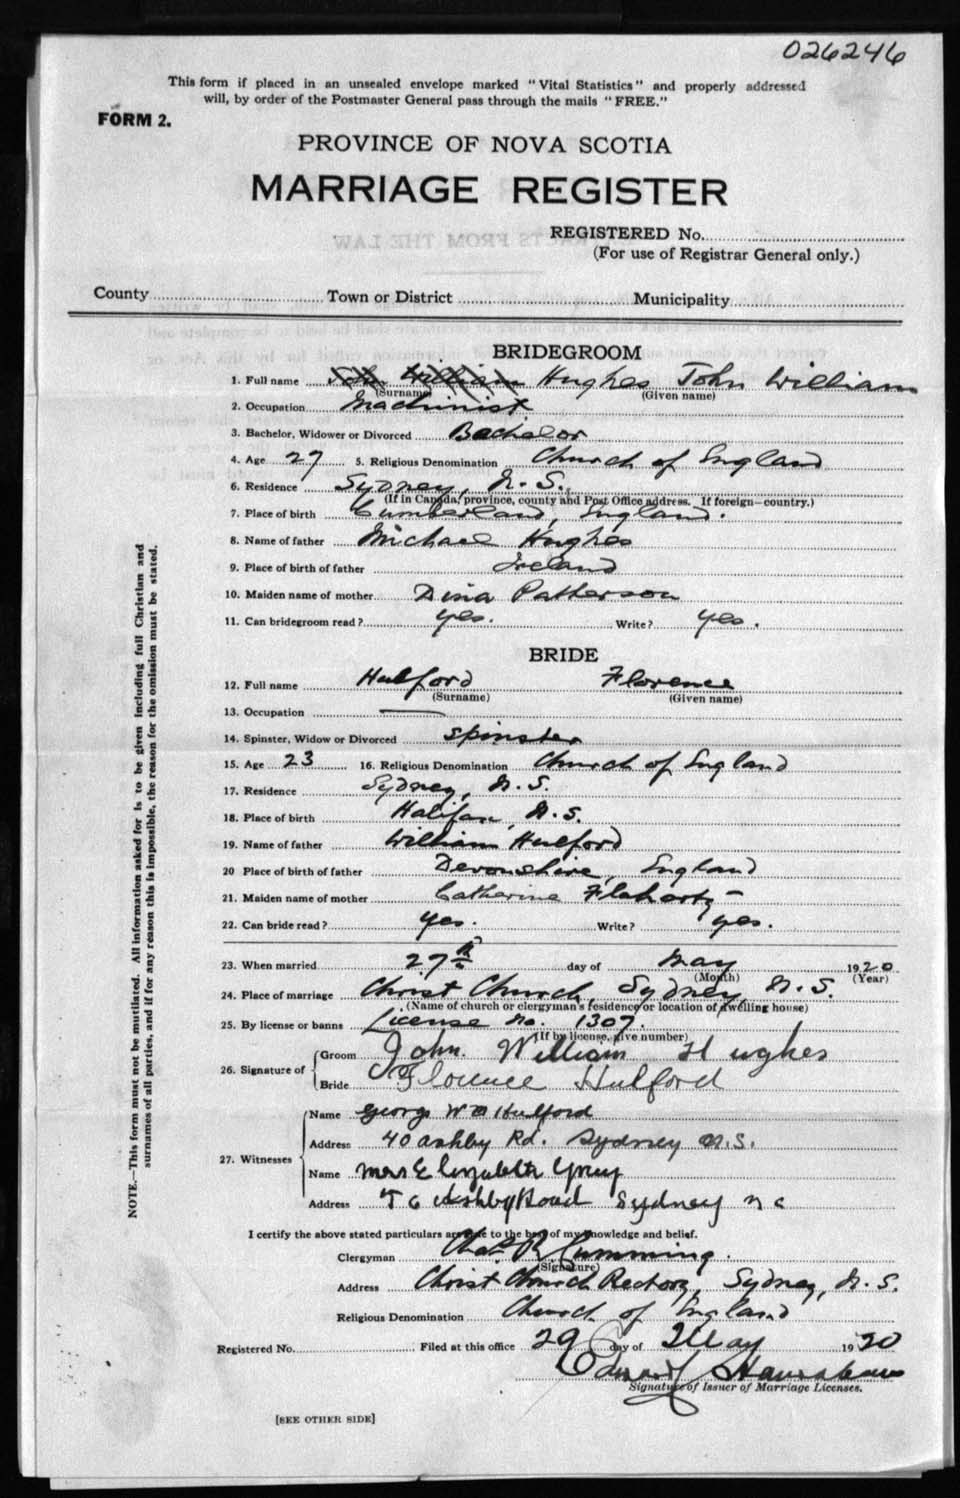 026246
This form if placed in an unsealed envelope marked "Vital Statistics" and properly addressed
will, by order of the Postmaster General pass through the mails "FREE."
FORM 2.
PROVINCE OF NOVA SCOTIA
MARRIAGE REGISTER
REGISTERED No.
(For use of Registrar General only.)
County Town or District Municipality
BRIDEGROOM
1. Full name John William Hughes John William
(Surname) (Given name)
2. Occupation Machinist
3. Bachelor, Widower or Divorced Bachelor
4. Age 27 5. Religious Denomination Church of England
6. Residence Sydney, N. S.
(If in Canada, province, county and Post Office address. If foreign—country.)
7. Place of birth Cumberland, England.
8. Name of father Michael Hughes
9. Place of birth of father Ireland
10. Maiden name of mother Dina Patherson
11. Can bridegroom read? yes. Write? yes.
BRIDE
12. Full name Hulford Florence
(Surname) (Given name)
13. Occupation —
14. Spinster, Widow or Divorced Spinster
15. Age 23 16. Religious Denomination Church of England
17. Residence Sydney, N. S.
18. Place of birth Halifax, N. S.
19. Name of father William Hulford
20 Place of birth of father Devonshire, England
21. Maiden name of mother Catherine Flaharty
22. Can bride read? yes. Write? yes.
23. When married 27th day of May 1920
(Month) (Year)
24. Place of marriage Christ Church, Sydney, N. S.
(Name of church or clergyman's residence or location of dwelling house)
25. By license or banns License No. 1307.
(If by license, give number)
26. Signature of Groom John William Hughes
Bride Florence Hulford
27. Witnesses
Name George W Hulford
Address 40 Ashby Rd. Sydney N.S.
Name Mrs Elizabeth
Address Ashby Road Sydney
I certify the above stated particulars are true to the best of my knowledge and belief.
Clergyman Chas. R. Cumming.
(Signature)
Address Christ Church Rectory, Sydney, N. S.
Religious Denomination Church of England
Registered No. Filed at this office 29 day of May 1920
Edward
Signature of Issuer of Marriage Licenses.
[SEE OTHER SIDE]
NOTE.—This form must not be mutilated. All information asked for is to be given including full Christian and
surnames of all parties, and if for any reason this is impossible, the reason for the omission must be stated.